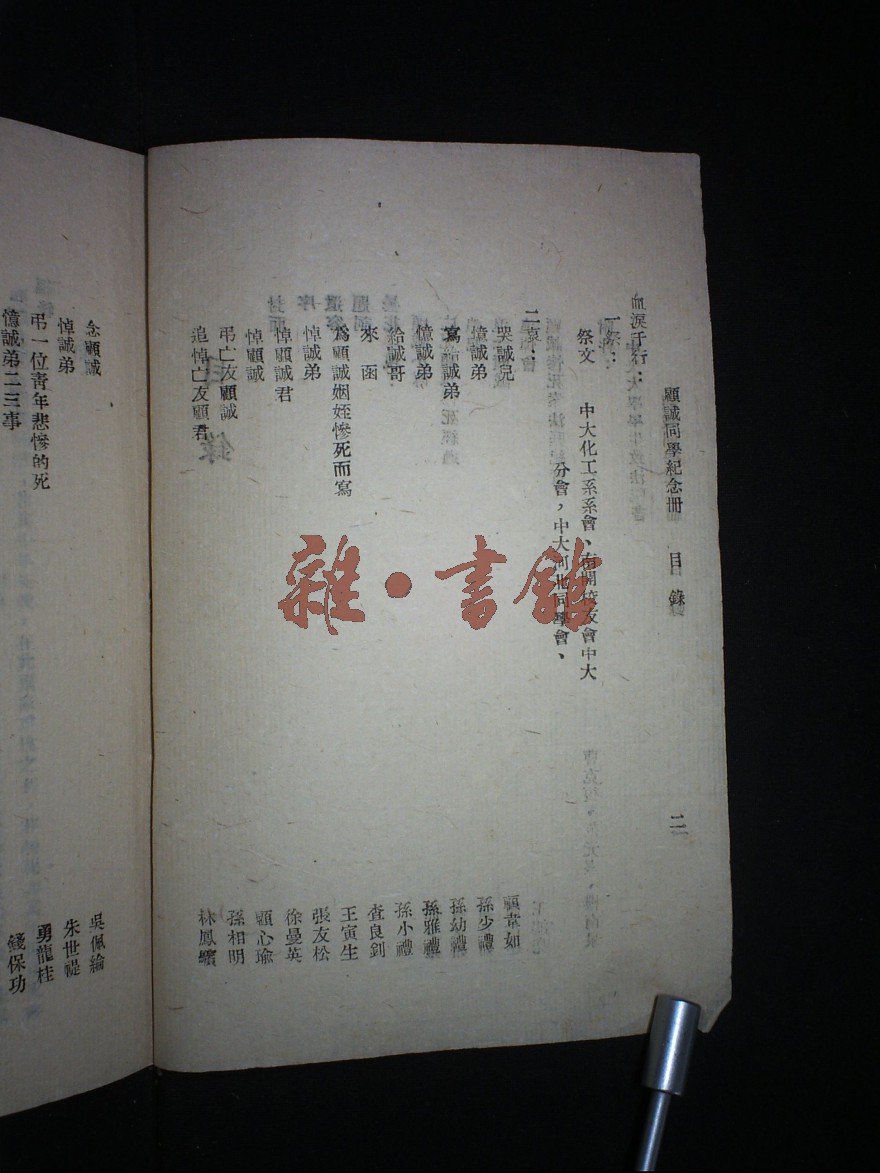 顧誠同學紀念冊 目錄 二
血淚千行：
一祭：
祭文 中大化工系系會、南開校友會中大
分會，中大河北同學會、
二哀：
哭誠兒 顧韋如
憶誠弟 孫少禮
寫給誠弟 孫幼禮
憶誠弟 孫雅禮
給誠哥 孫小禮
來函 查良釗
為顧誠姻姪慘死而寫 王寅生
悼誠弟 張友松
悼顧誠君 徐曼英
悼顧誠 顧心瑜
弔亡友顧誠 孫相明
追悼亡友顧君 林鳳
念顧誠 吳佩綸
悼誠弟 朱世褆
弔一位青年悲慘的死 勇龍桂
憶誠弟二三事 錢保功
雜·書館